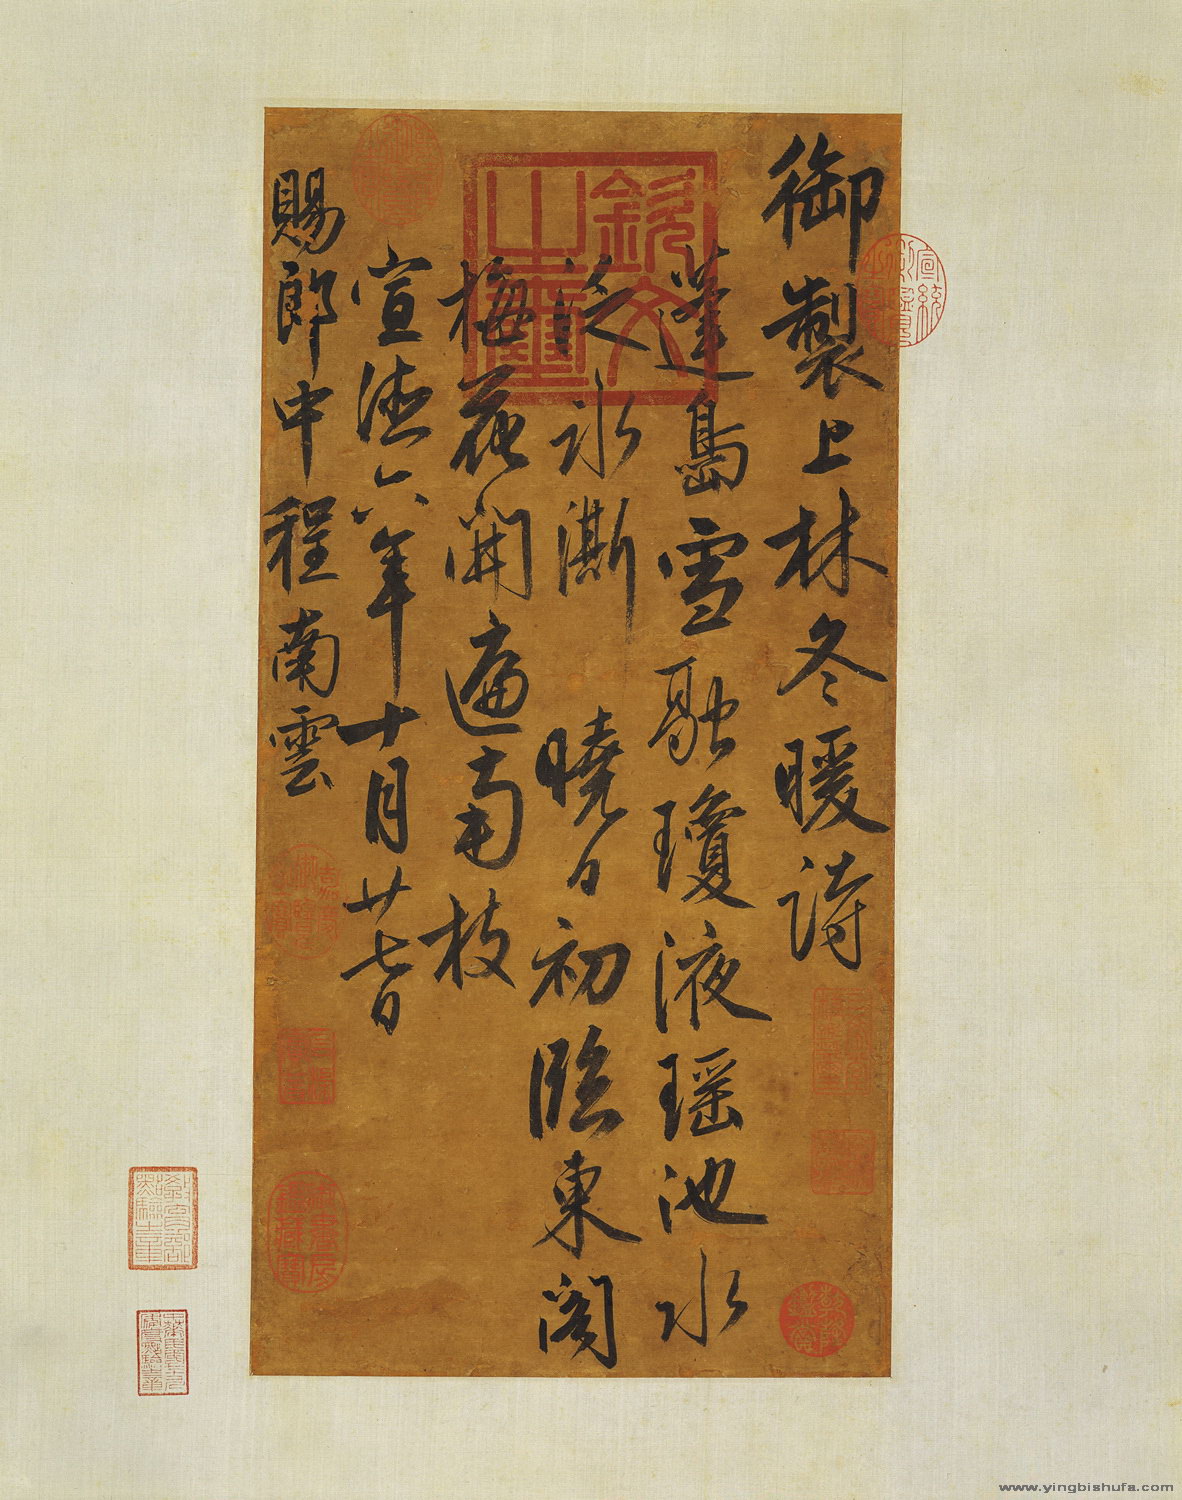 御製上林冬暖詩
蓬島雪融瓊液瑤池水
泛冰澌曉日初臨東閣
梅花開遍南枝
宣德六年十月廿七日
賜郎中程南雲
欽文之璽
宣統御覽之寶
www.yingbishufa.com